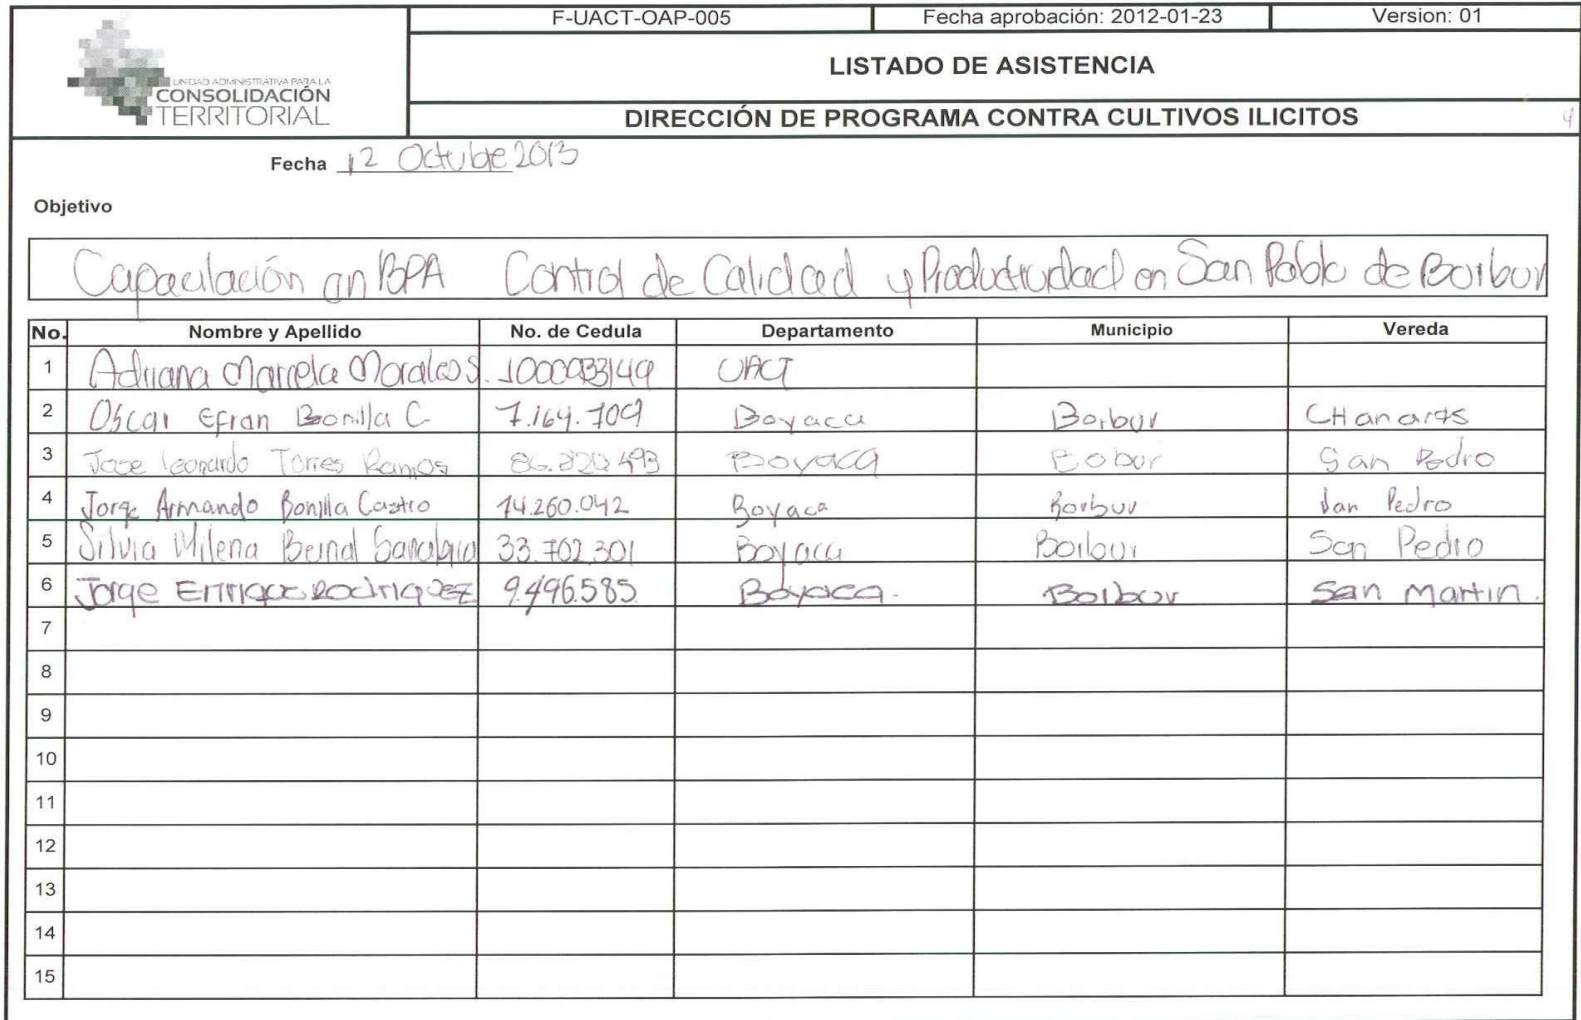 F-UACT-OAP-005 Fecha aprobación: 2012-01-23 Version: 01
UNIDAD ADMINISTRATIVA PARA LA
CONSOLIDACIÓN
TERRITORIAL
LISTADO DE ASISTENCIA
DIRECCIÓN DE PROGRAMA CONTRA CULTIVOS ILICITOS
Fecha 12 Octubre 2013
Objetivo
Capacitación en BPA Control de Calidad y Productividad en San Pablo de Borbur
No. Nombre y Apellido No. de Cedula Departamento Municipio Vereda
1 Adriana Marcela Morales S. UACT
2 Oscar Efran Bonilla C. 7.164.709 Boyaca Borbur CHanares
3 Jose Leonardo Torres Ramos Boyaca Bobur San Pedro
4 Jorge Armando Bonilla Castro 74.260.042 Boyaca Borbur San Pedro
5 Silvia Milena Bernal 33.702.301 Boyaca Borbur San Pedro
6 Jorge Enrique Rodriguez 9.496.585 Boyaca. Borbur San Martin.
7
8
9
10
11
12
13
14
15